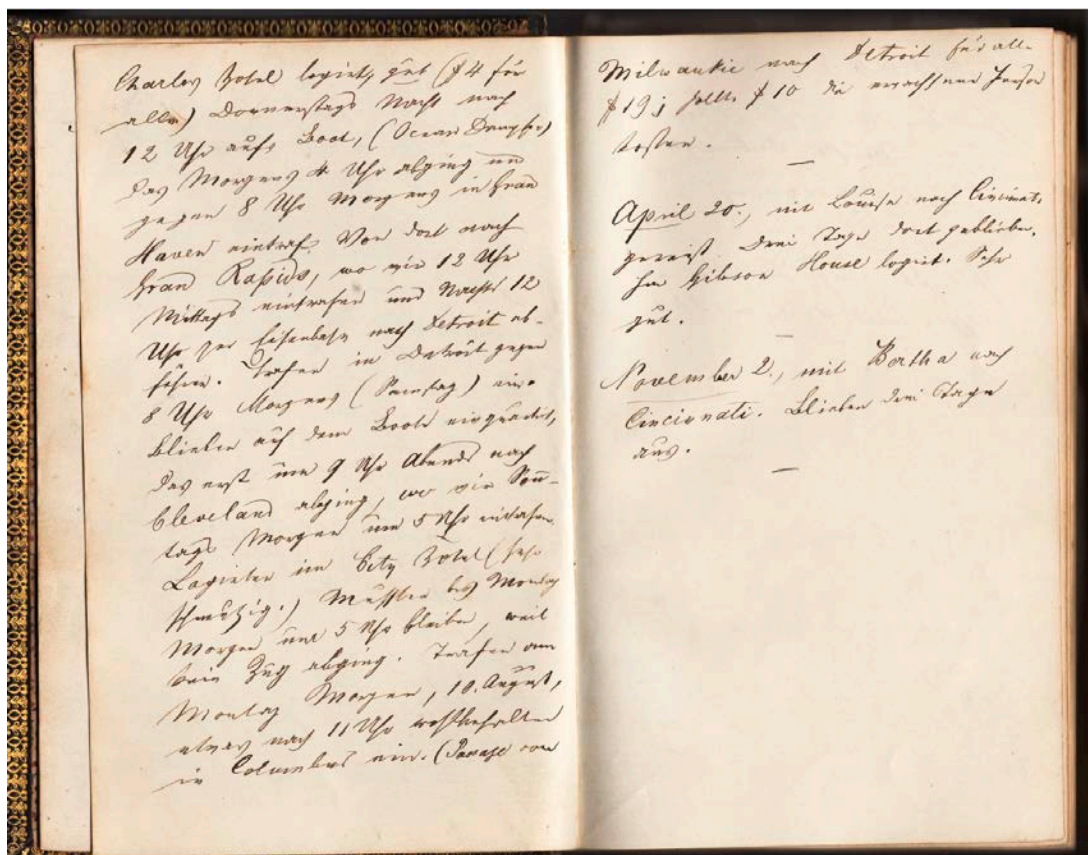 Charles Hotel logirt, gut ($4 für
alle) Donnerstags Nacht nach
12 Uhr aufs Boot, (Ocean Dampfer)
das Morgens 4 Uhr abging und
gegen 8 Uhr Morgens in Gran
Haven eintraf. Von dort nach
Gran Rapids, wo wir 12 Uhr
Mittags eintrafen und Nachts 12
Uhr per Eisenbahn nach Detroit ab-
fuhren. Trafen in Detroit gegen
8 Uhr Morgens (Samstag) ein.
Blieben auf dem Boote
das erst um 9 Uhr Abends nach
Cleveland abging, wo wir Sonn-
tags Morgen um 5 Uhr eintrafen
Logirten im City Hotel (sehr
schmutzig.) Mussten bis Montag
Morgen um 5 Uhr bleiben, weil
kein Zug abging. Trafen am
Montag Morgen, 10. August,
etwas nach 11 Uhr wohlbehalten
in Columbus ein. (Passage von
Milwaukie nach Detroit für alle
$19; sollte $10 die erwachsene Person
kosten.
April 20., mit Louise nach Cincinnati
gereist. Drei Tage dort geblieben.
Im Gibson House logirt. Sehr
gut.
November 2., mit Bertha nach
Cincinnati. Blieben drei Tage
aus.